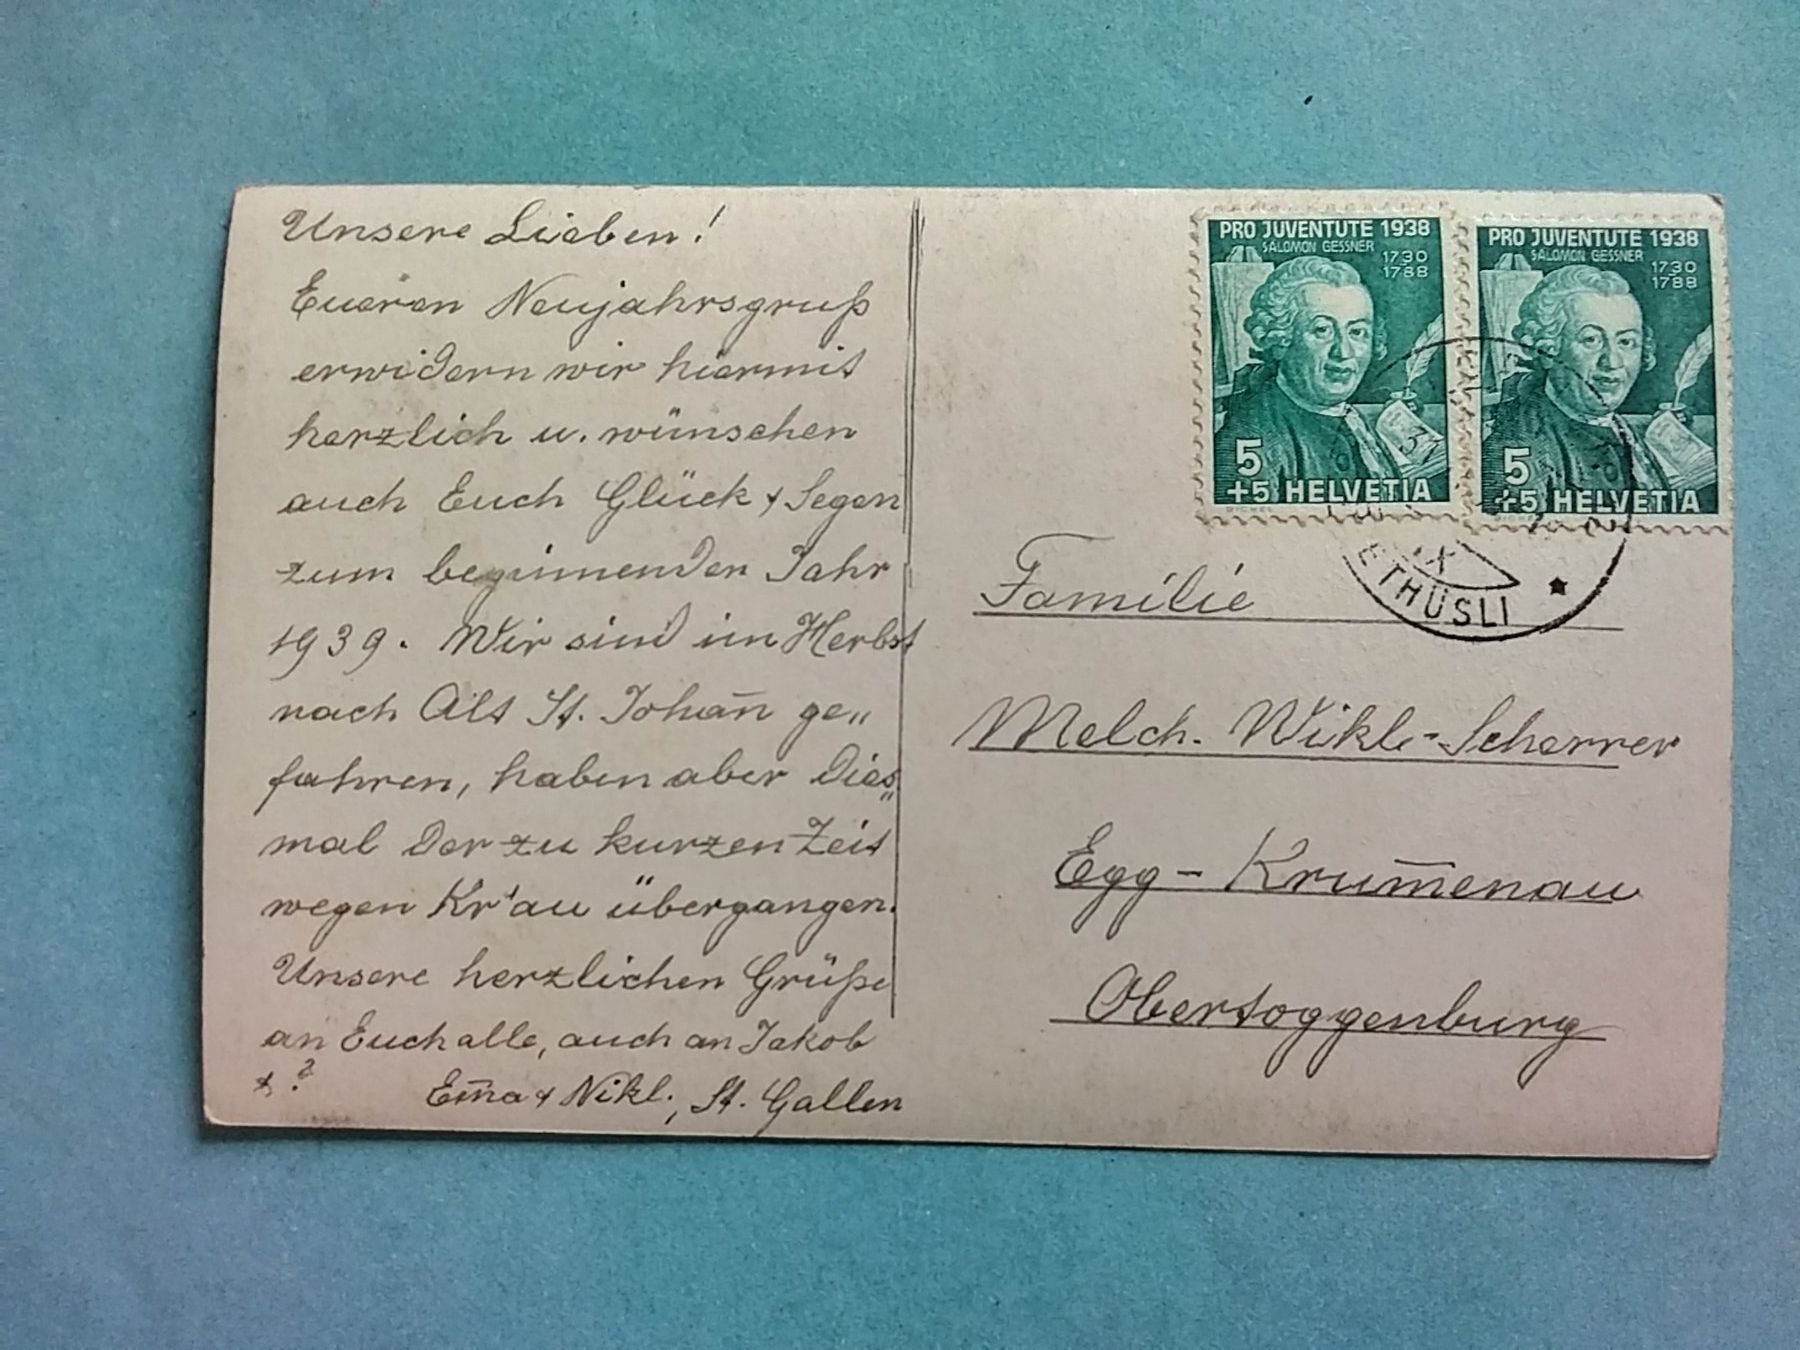 Unsere Lieben!
Eueren Neujahrsgruß
erwidern wir hiermit
herzlich u. wünschen
auch Euch Glück & Segen
zum beginnenden Jahr
1939. Wir sind im Herbst
nach Alt St. Johan̄ ge„
fahren, haben aber dies„
mal der zu kurzen Zeit
wegen Kr'au übergangen.
Unsere herzlichen Grüße
an Euch alle, auch an Jakob
&?
Em̄a & Nikl., St. Gallen
PRO JUVENTUTE 1938
SALOMON GESSNER
1730
1788
5
+5 HELVETIA
PRO JUVENTUTE 1938
SALOMON GESSNER
1730
1788
5
+5 HELVETIA
IX
ETHÜSLI
Familie
Melch. Wikl.-Scherrer
Egg - Krum̄enau
Obertoggenburg